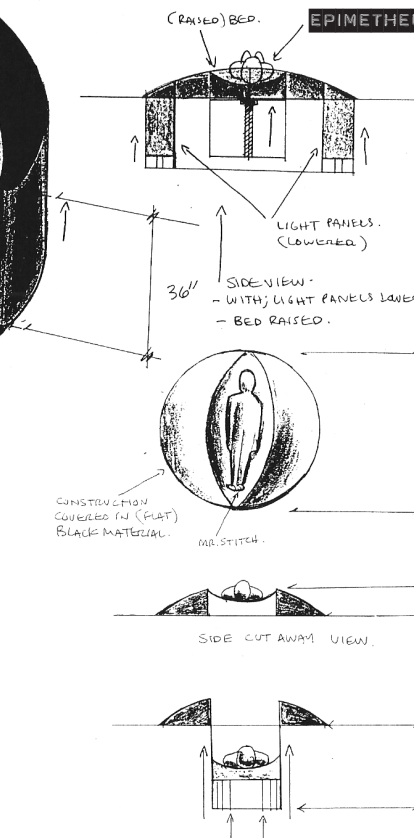 (RAISED) BED.
EPIMETHE
LIGHT PANELS.
(LOWERED)
36"
SIDE VIEW -
- WITH; LIGHT PANELS LOWE
- BED RAISED.
CONSTRUCTION
COVERED IN (FLAT)
BLACK MATERIAL.
MR. STITCH.
SIDE CUT AWAY VIEW.